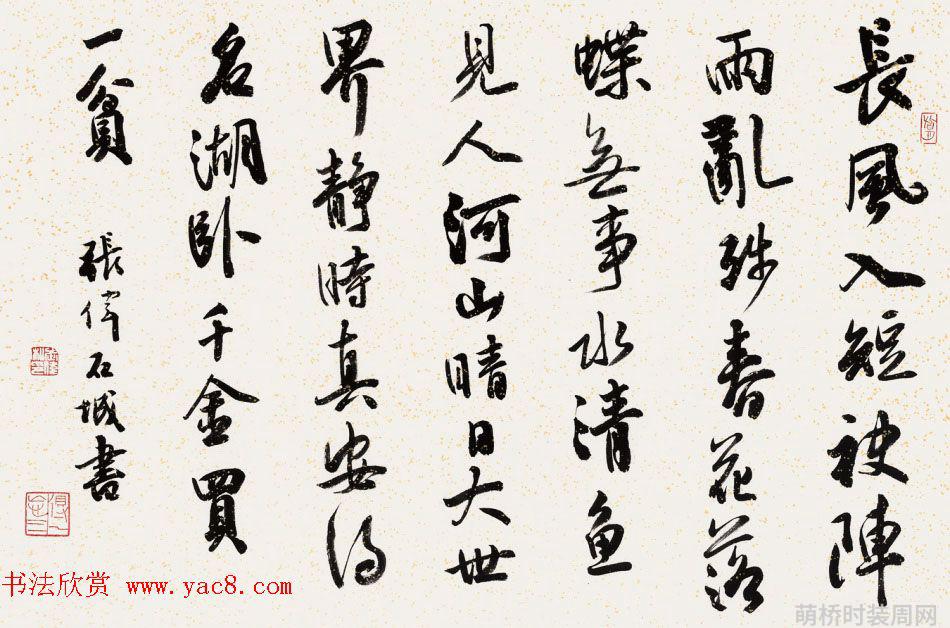 長風入短袂陣
雨亂殘春花落
蝶無事水清魚
見人河山晴日大世
界靜時真安得
名湖卧千金買
一貧
張偉石城書
书法欣赏 www.yac8.com
萌桥时装周网